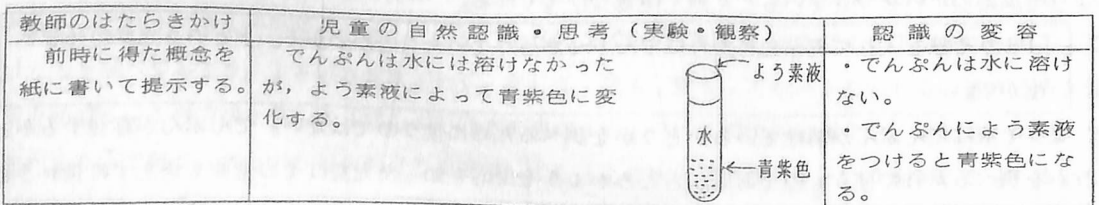 教師のはたらきかけ
児童の自然認識・思考（実験・観察）
認識の変容
前時に得た概念を
紙に書いて提示する。
でんぷんは水には溶けなかった
が，よう素液によって青紫色に変
化する。
よう素液
水
青紫色
・でんぷんは水に溶け
ない。
・でんぷんによう素液
をつけると青紫色にな
る。